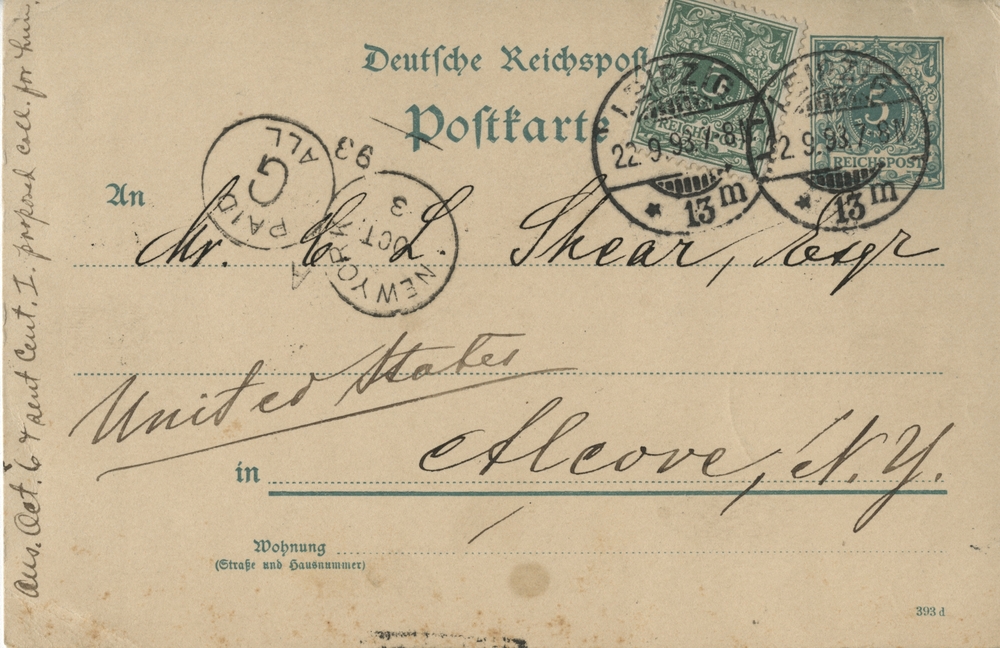 Deutsche Reichspost
Postkarte
5
REICHSPOST
5
REICHSPOST
LEIPZIG
22.9.93.7-8N
* 13 m
LEIPZIG
22.9.93.7-8N
* 13 m
PAID
G
ALL
A
NEW YORK
OCT
3
93
An Mr. C L. Shear, Esqr
United States
in Alcove, N.Y.
Wohnung
(Straße und Hausnummer)
393 d
Ans. Oct. 6 & sent Cent. I. proposed call. for him.